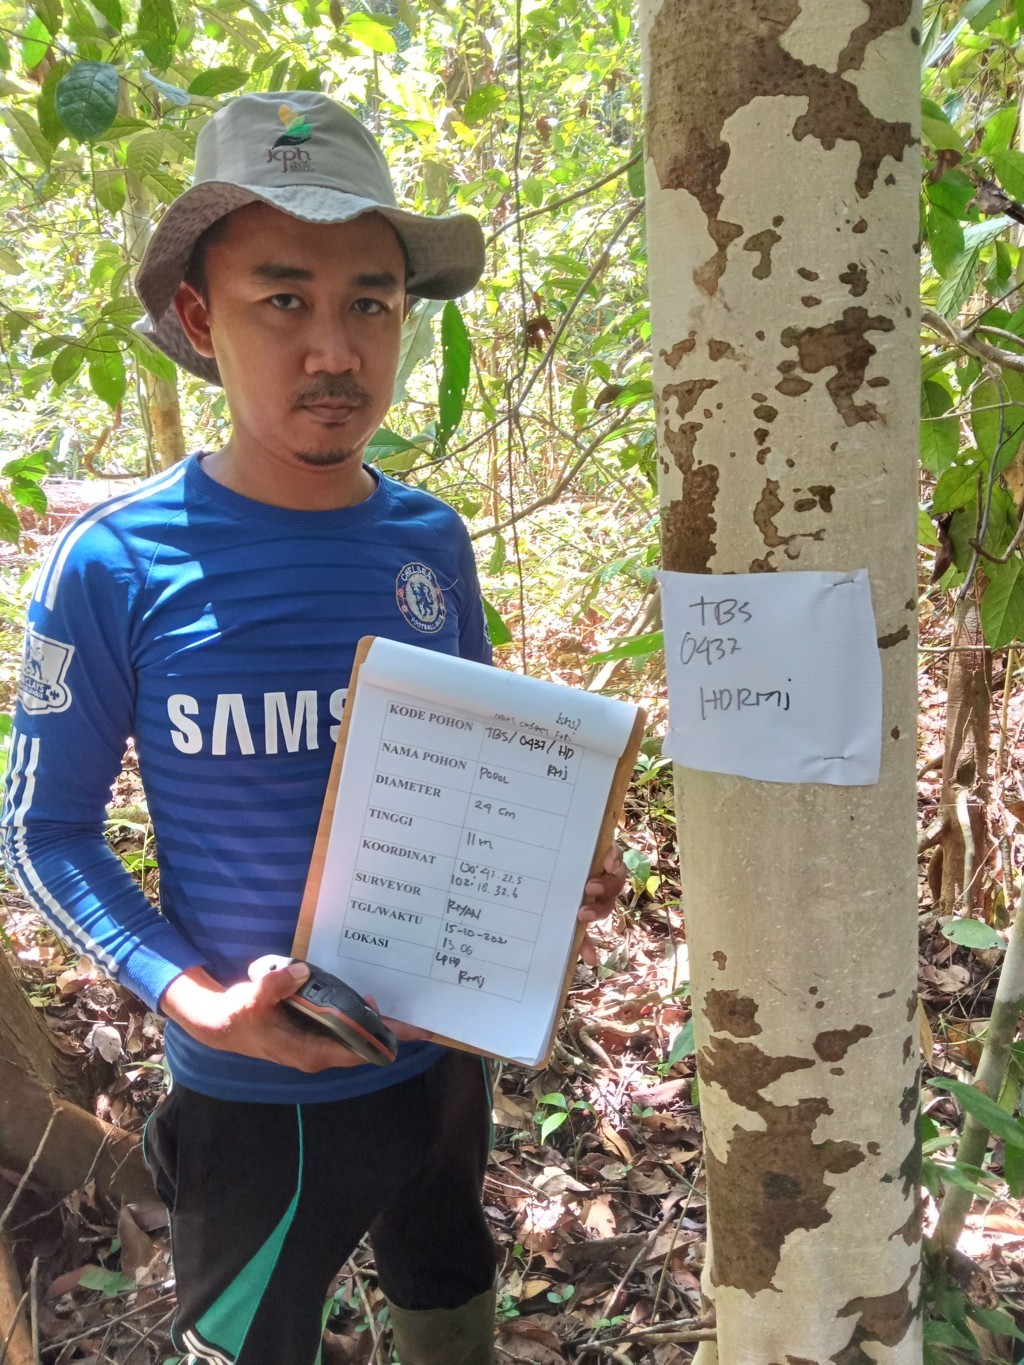 kph
CHELSEA
FOOTBALL CLUB
SAMS
BARCLAYS
TBS
0437
HDRMj
KODE POHON TBS/0437/HD
RMj
NAMA POHON PODOL
DIAMETER 29 cm
TINGGI 11 m
KOORDINAT 00°.47.22.5
102°.18.32.6
SURVEYOR RIYAN
TGL/WAKTU 15-10-2021
13.06
LOKASI LPHD
RMj